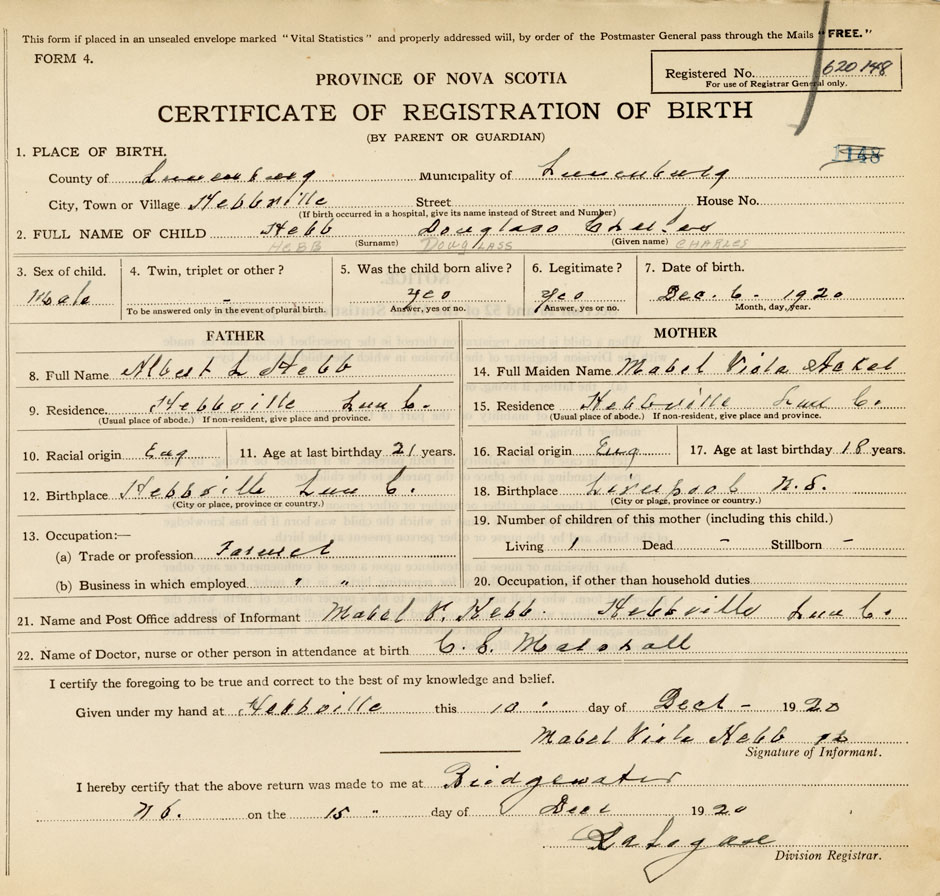 This form if placed in an unsealed envelope marked "Vital Statistics" and properly addressed will, by order of the Postmaster General pass through the Mails "FREE."
FORM 4.
Registered No. 620148
For use of Registrar General only.
PROVINCE OF NOVA SCOTIA
CERTIFICATE OF REGISTRATION OF BIRTH
(BY PARENT OR GUARDIAN)
1148
1. PLACE OF BIRTH.
County of Lunenburg Municipality of Lunenburg
City, Town or Village Hebbville Street House No.
(If birth occurred in a hospital, give its name instead of Street and Number)
2. FULL NAME OF CHILD Hebb Douglass Charles
HEBB (Surname) DOUGLASS (Given name) CHARLES
3. Sex of child. 4. Twin, triplet or other? 5. Was the child born alive? 6. Legitimate? 7. Date of birth.
Male - yes yes Dec. 6 - 1920
To be answered only in the event of plural birth. Answer, yes or no. Answer, yes or no. Month, day, year.
FATHER
8. Full Name Albert L Hebb
9. Residence. Hebbville Lun C.
(Usual place of abode.) If non-resident, give place and province.
10. Racial origin Eng 11. Age at last birthday 21 years.
12. Birthplace Hebbville Lun C.
(City or place, province or country.)
13. Occupation:—
(a) Trade or profession Farmer
(b) Business in which employed " "
MOTHER
14. Full Maiden Name Mabel Viola
15. Residence Hebbville Lun C.
(Usual place of abode.) If non-resident, give place and province.
16. Racial origin Eng 17. Age at last birthday 18 years.
18. Birthplace Liverpool N.S.
(City or place, province or country.)
19. Number of children of this mother (including this child.)
Living 1 Dead - Stillborn -
20. Occupation, if other than household duties
21. Name and Post Office address of Informant Mabel V. Hebb. Hebbville Lun C.
22. Name of Doctor, nurse or other person in attendance at birth C. S. Marshall
I certify the foregoing to be true and correct to the best of my knowledge and belief.
Given under my hand at Hebbville this 10 " day of Dect - 1920
Mabel Viola Hebb
Signature of Informant.
I hereby certify that the above return was made to me at Bridgewater
on the 15 " day of Dec 1920
Division Registrar.